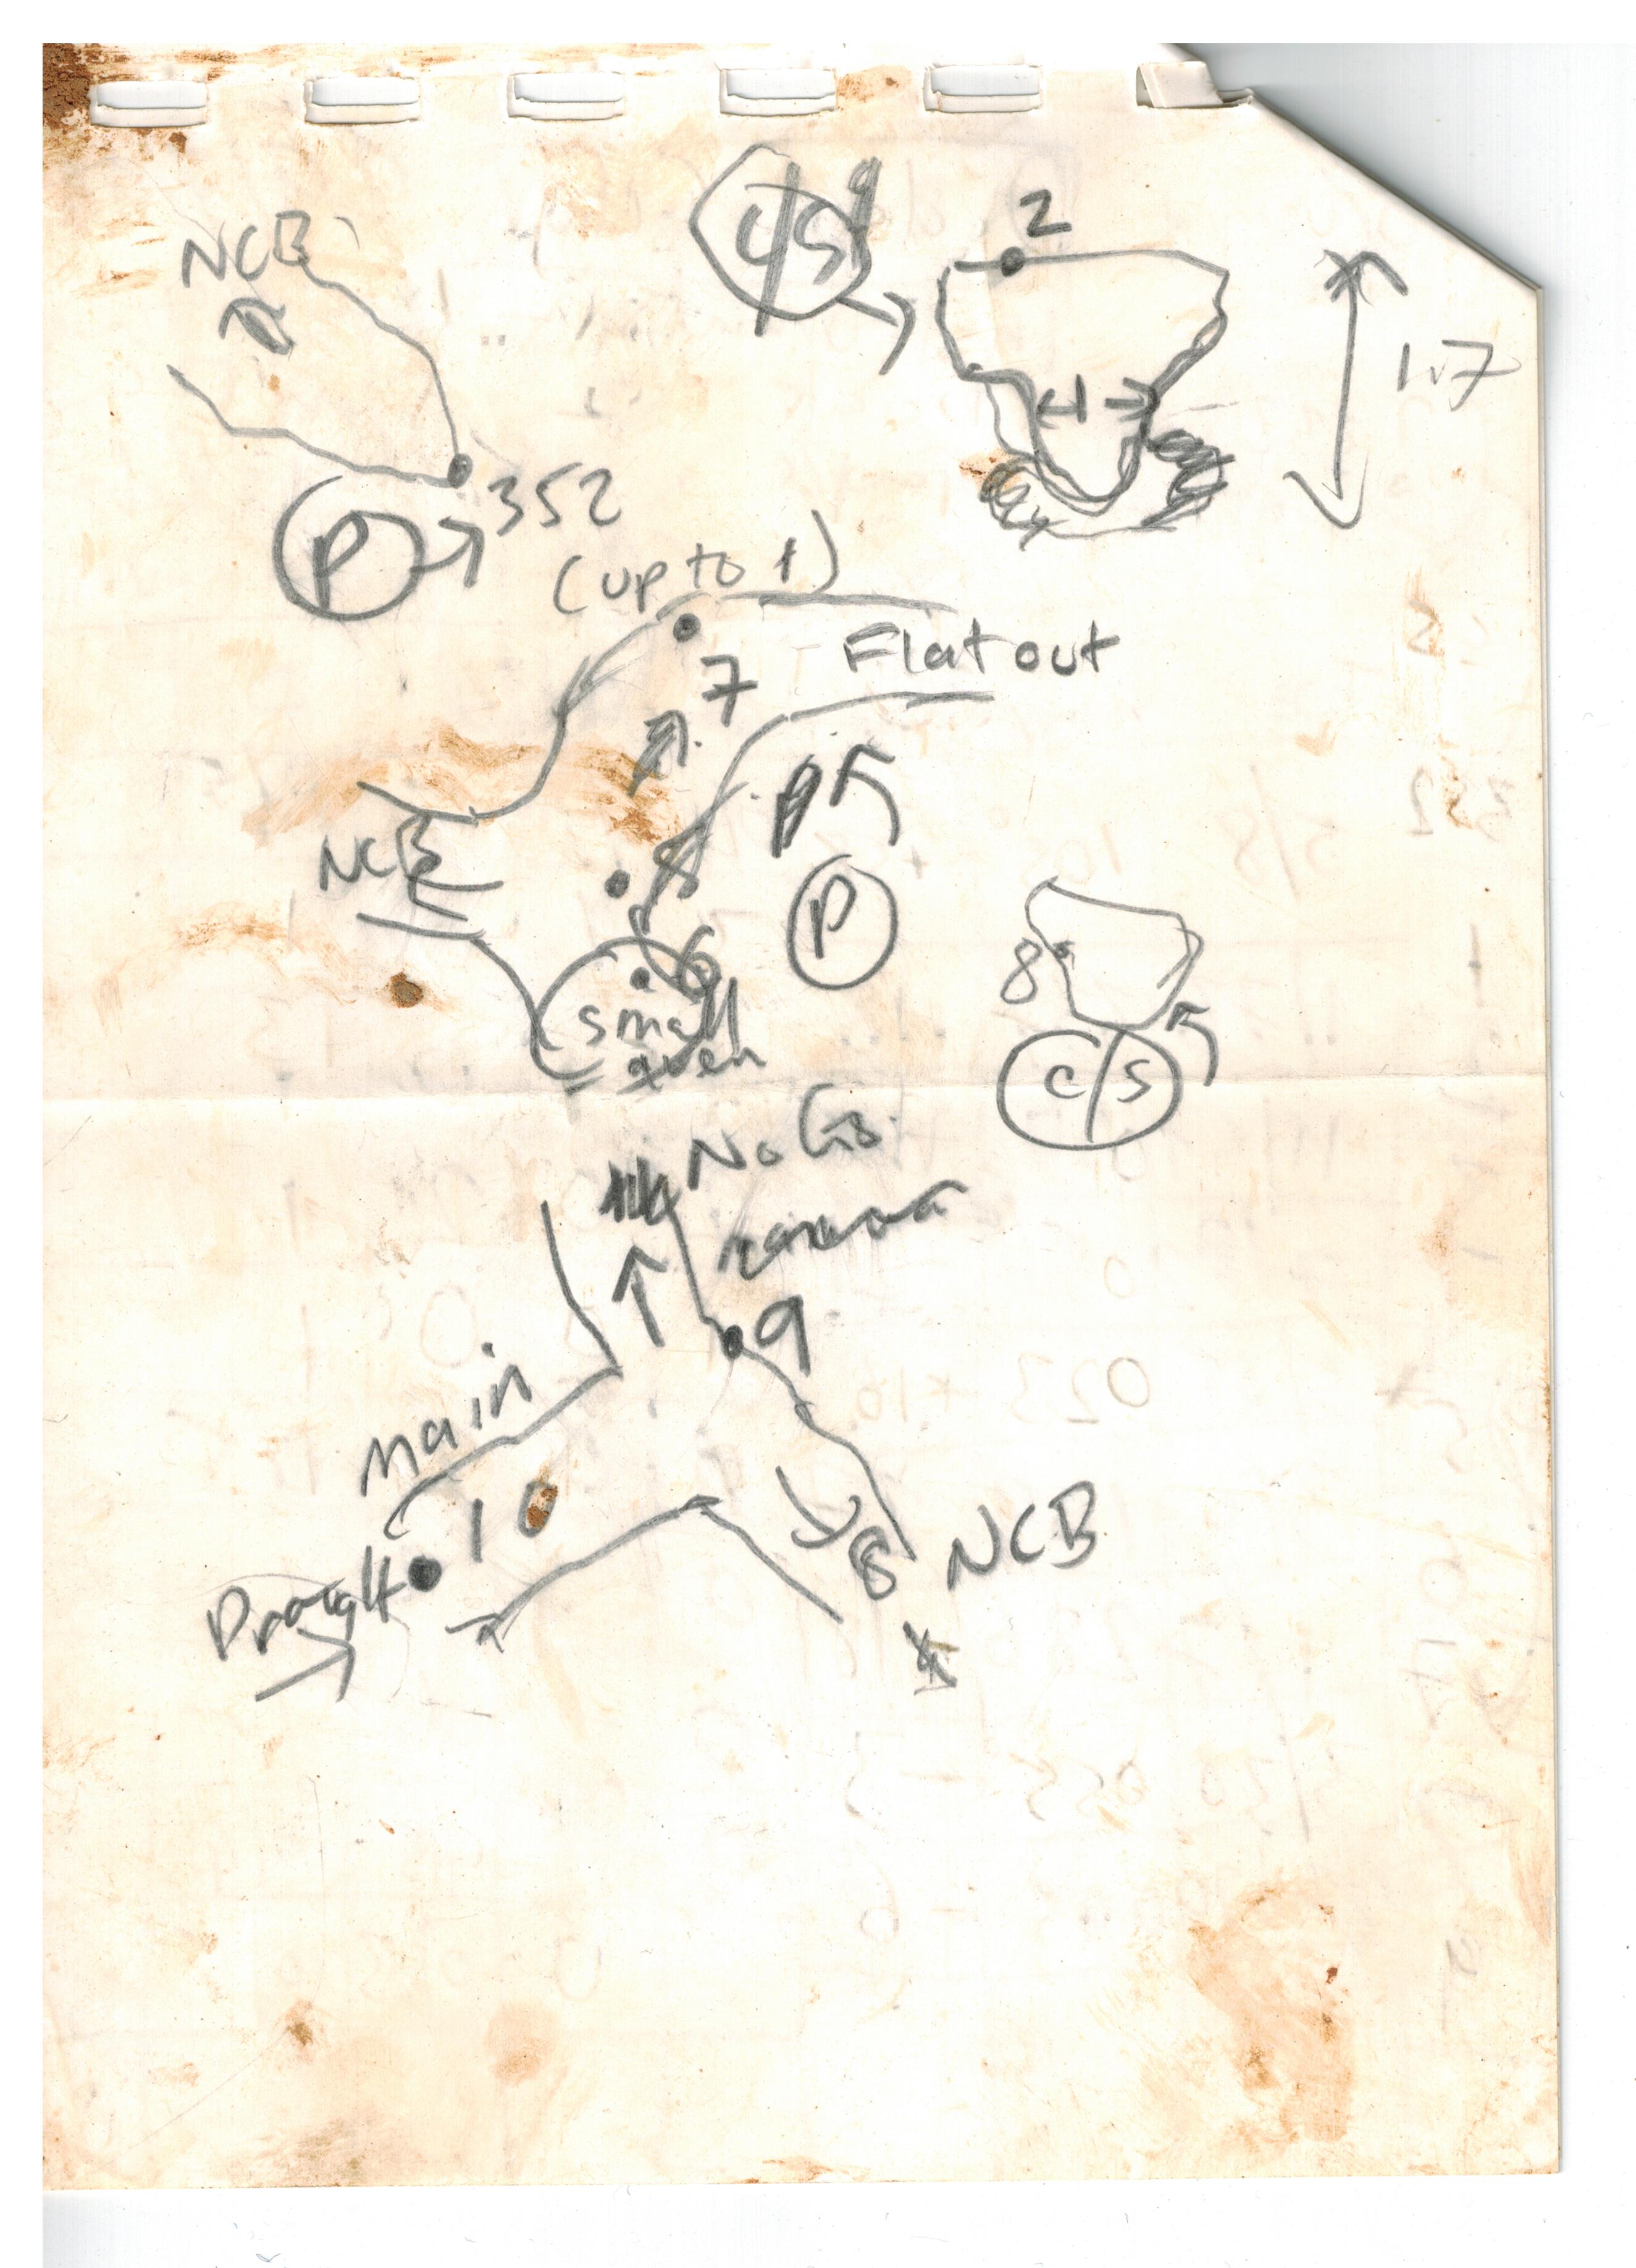 NCB
C/S
2
1
1.7
352
P
(up to 1)
Flat out
7
P
NCB
P
6
small
aven
8
C/S
No Go
9
Main
10
Draught
8
NCB